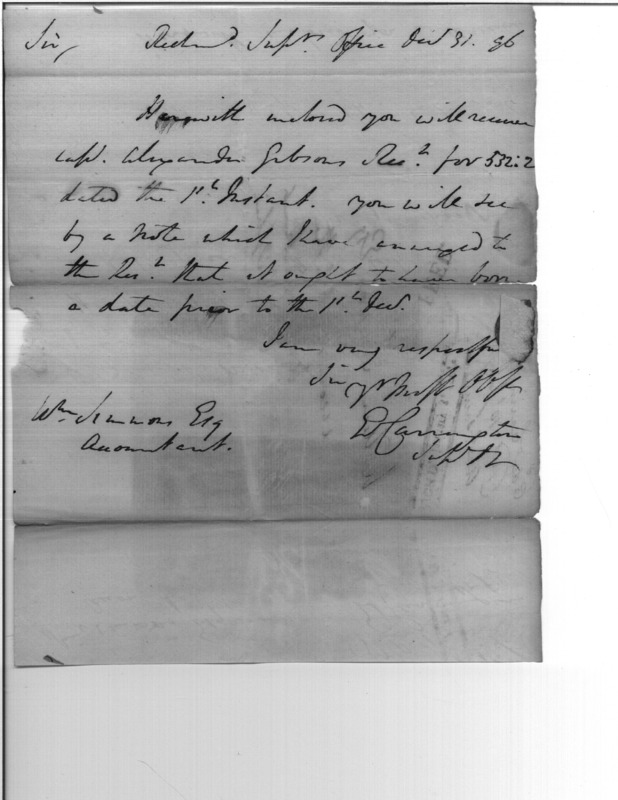 Sir, Richmd. Supvrs Office Decr 31. 96
Herewith inclosed you will receive
capt. Alexander Gibsons Rect. for 532:2
dated the 1st. Instant. you will see
by a Note which I have annexed to
the Rect. that it ought to have born
a date prior to the 1st. Decr.
I am very respectfy
Sir yr Most Obt
Wm Simmons Esq
Accountant.
Ed Carrington